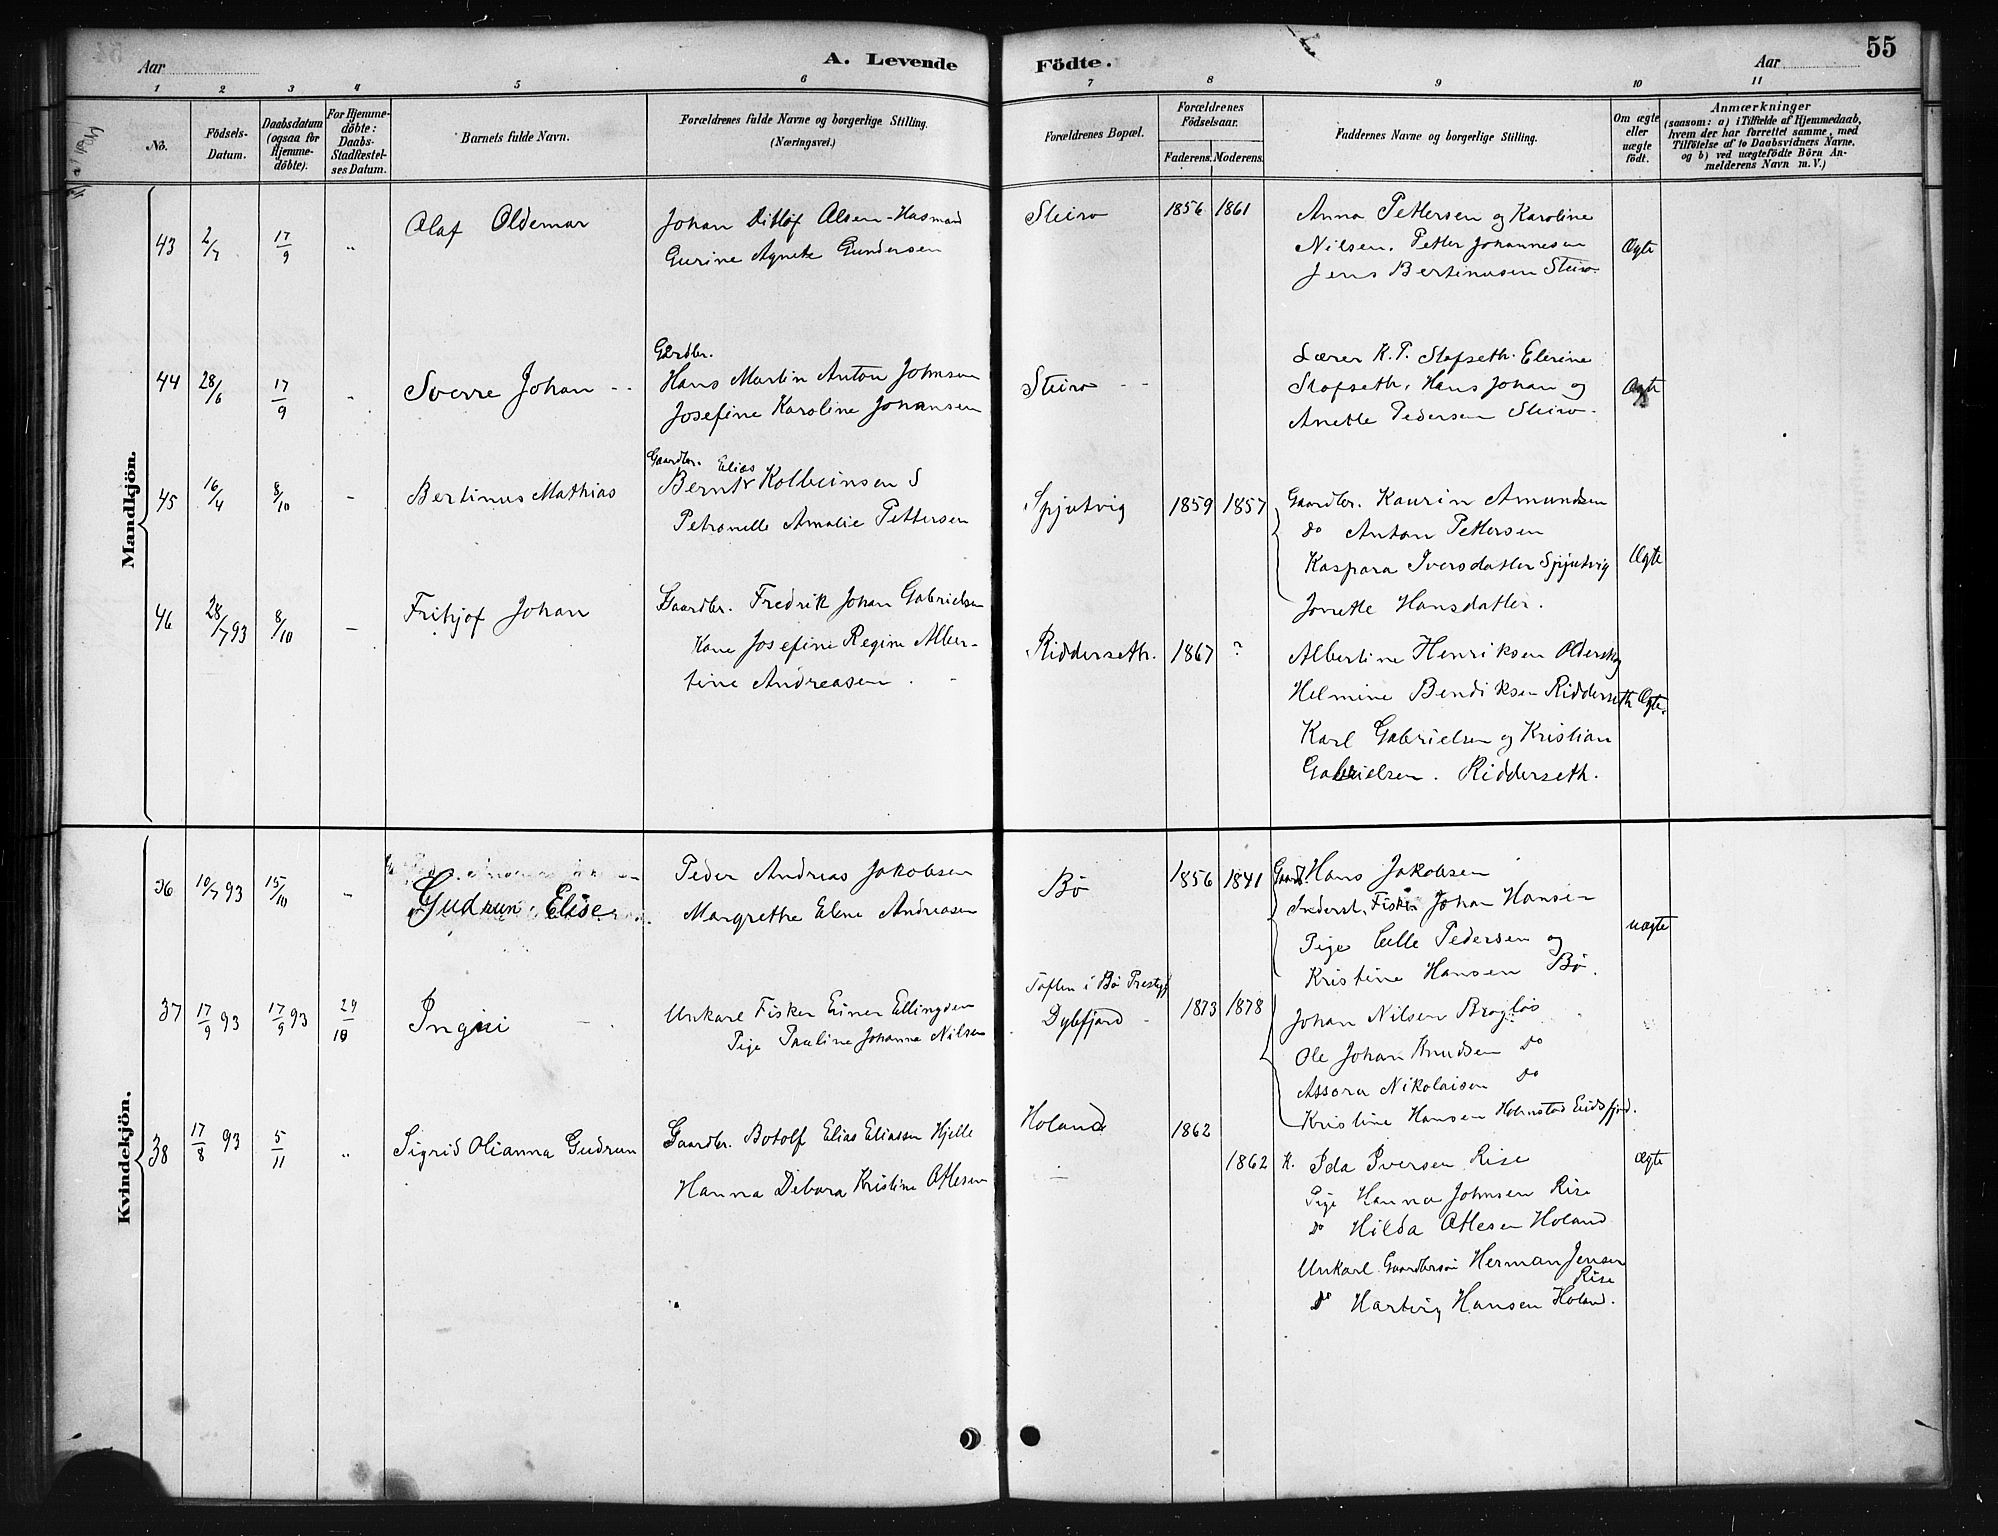 A. Levende Födte.
55
Aar
Aar
1 2 3 4 5 6 7 8 9 10 11
No.
Födsels-Datum.
Daabsdatum (ogsaa for Hjemme-döbte).
For Hjemme-döbte: Daabs-Stadfæstel-ses Datum.
Barnets fulde Navn.
Forældrenes fulde Navne og borgerlige Stilling. (Næringsvei.)
Forældrenes Bopæl.
Forældrenes Födselsaar.
Faderens. Moderens.
Faddernes Navne og borgerlige Stilling.
Om ægte eller uægte födt.
Anmærkninger
(saasom: a) i Tilfælde af Hjemmedaab,
hvem der har forrettet samme, med
Tilföielse af to Daabsvidners Navne,
og b) ved uægtefödte Börn An-
melderens Navn m. V.)
Mandkjön.
43 2/7 17/9 " Olaf Oldemar
Johan Ditløf Olsen - Husmand
Gurine Agnete Gundersen
Steiro 1856 1861
Anna Pettersen og Karoline
Nilsen, Petter Johannesen
Jens Bertinusen Steiro
Ægte
44 28/6 17/9 " Sverre Johan
Gårdbr.
Hans Martin Anton Johnsen
Josefine Karoline Johansen
Steiro
Lærer K. P. Slofseth. Elerine
Slofseth, Hans Johan og
Anette Pedersen Steiro
Ægte
45 16/4 8/10 - Bertinus Mathias
Gaardbr. Elias
Bernt Kolbeinsen S
Petronelle Amalie Pettersen
Spjutvig 1859 1857
Gaardbr. Kaurin Amundsen
Do Anton Pettersen
Kaspara Iversdatter Spjutvig
Jonette Hansdatter.
Ægte
46 28/7 93 8/10 - Frithjof Johan
Gaardbr. Fredrik Johan Gabrielsen
Kone Josefine Regine Alber-
tine Andreasen.
Ridderseth. 1867 ?
Albertine Henriksen Olderskog
Helmine Bendiksen Ridderseth
Karl Gabrielsen og Kristian
Gabrielsen. Ridderseth.
Ægte.
Kvindekjön.
36 10/7 93 15/10 - Gudrun Elise
Peder Andreas Jakobsen
Margrethe Elene Andreasen
Bø 1856 1841
Gaardb. Hans Jakobsen
Inderst, Fisker Johan Hansen
Pige Celle Pedersen og
Kristine Hansen Bø.
uægte
37 17/9 93 17/9 93 29/10 Ingui
Unkarl Fisker Einer Ellingsen
Pige Pauline Johanna Nilsen
Toften i Bø Prestegj
Dybfjord 1873 1878
Johan Nilsen Brogløs
Ole Johan Knudsen Do
Assora Nikolaisen Do
Kristine Hansen Holmstad Eidsfjord.
38 17/8 93 5/11 " Sigrid Olianna Gudrun
Gaardbr. Botolf Elias Eliassen Hjelle
Hanna Debora Kristine Otlesen
Holand 1862
1862
K. Ida Iversen Rise
Pige Hanna Johnsen Rise
Do Hilda Otlesen Holand
Unkarl Gaardbrsøn Herman Jensen
Rise
Do Hartvig Hansen Holand.
Ægte